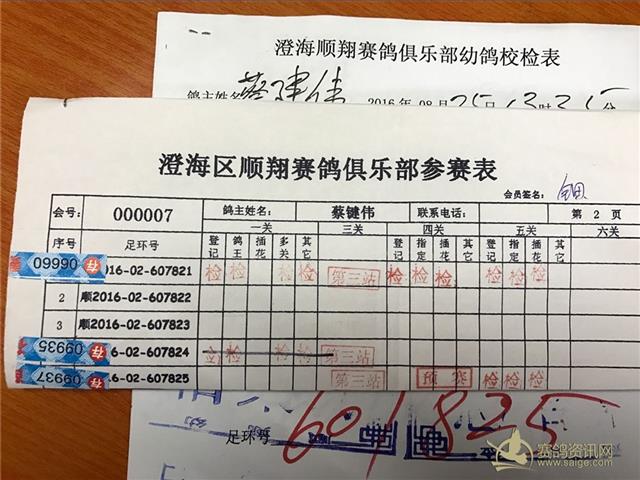 澄海顺翔赛鸽俱乐部幼鸽校检表
鸽主姓名 蔡键伟 2016年 08月25日13时35分
澄海区顺翔赛鸽俱乐部参赛表
会员签名：
会号： 000007 鸽主姓名： 蔡键伟 联系电话： 第 2 页
一关 三关 四关 五关 六关
序号 足环号 登记 鸽王 插花 多关 其它 登记 指定 插花 其它 登记 指定 插花 其它
06660 存 2016-02-607821 检 检 检 检 检 第三站 检 检 检
2 顺2016-02-607822
3 顺2016-02-607823
09935 存 6-02-607824 检 检 检 第三站
09937 存 16-02-607825 第三站 预赛 检 检 检
足环号 601825
赛鸽资讯网
www.saige.com